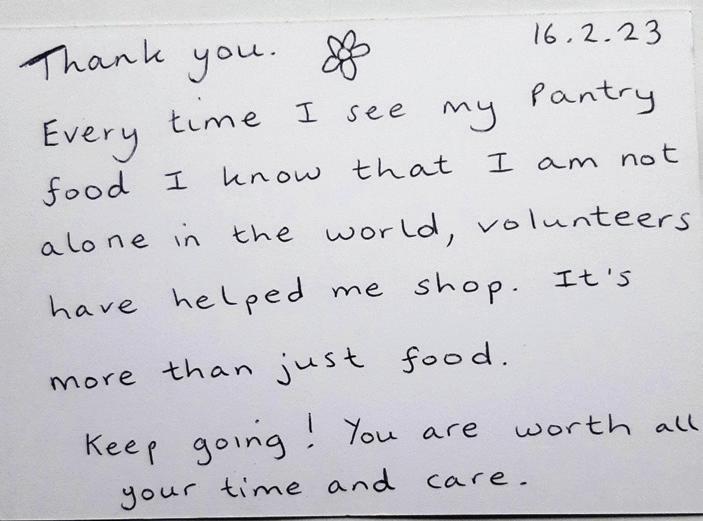 Thank you. 16.2.23
Every time I see my Pantry
food I know that I am not
alone in the world, volunteers
have helped me shop. It's
more than just food.
Keep going! You are worth all
your time and care.